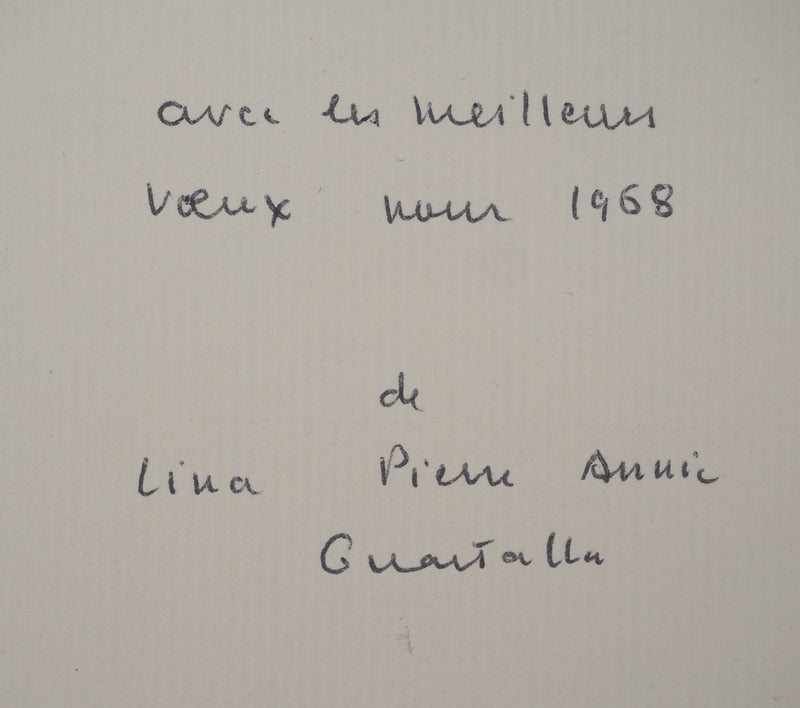 avec les meilleurs
vœux pour 1968
de
Lina Pierre Annie
Guastalla